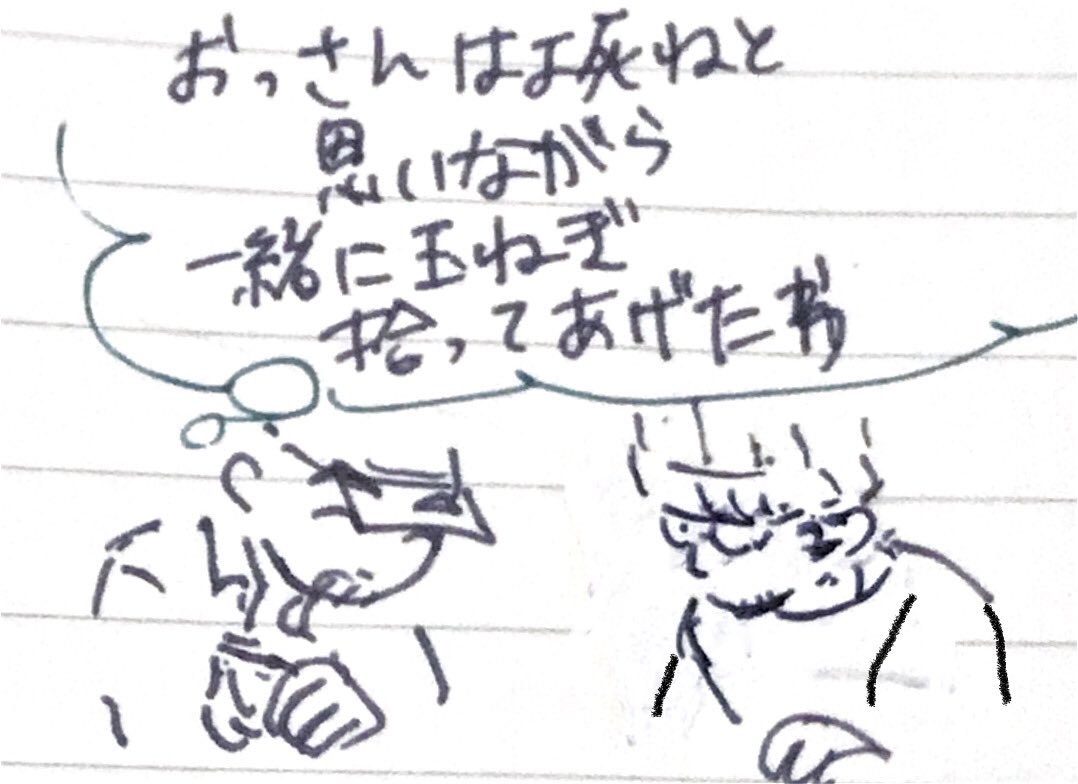 おっさんはよ死ねと
思いながら
一緒に玉ねぎ
拾ってあげたわ